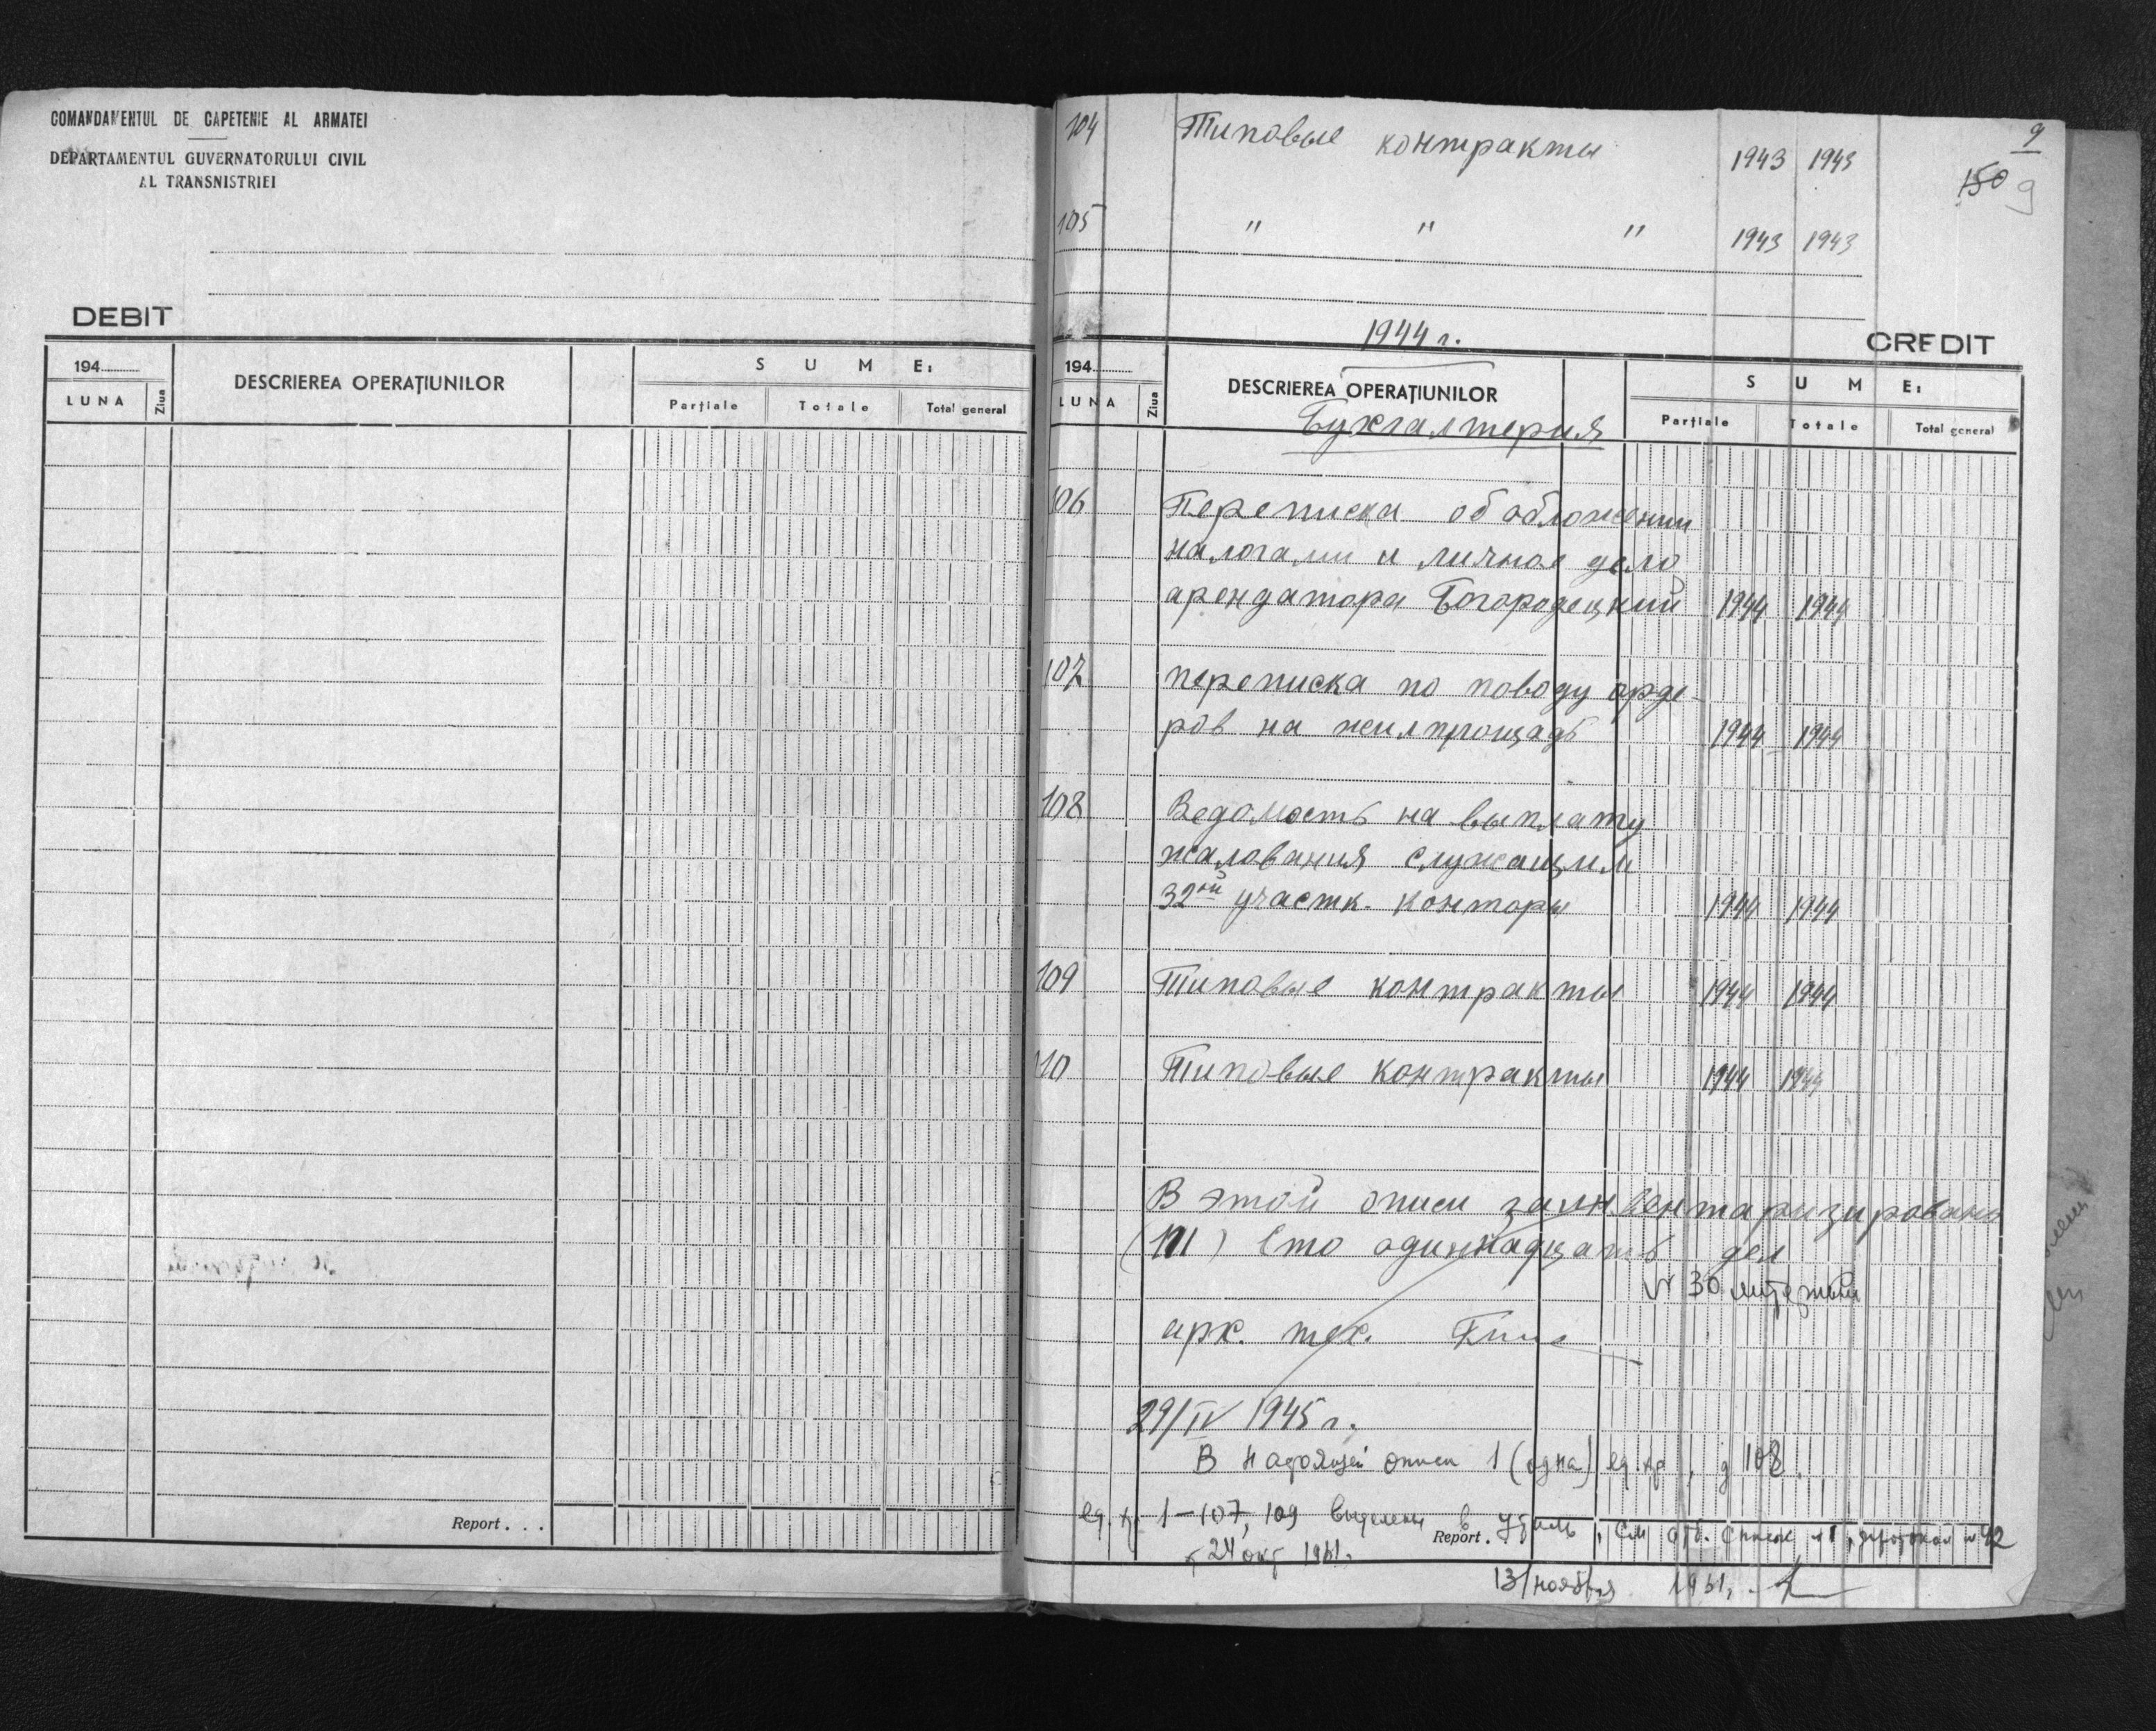 COMANDAMENTUL DE CAPETENIE AL ARMATEI
DEPARTAMENTUL GUVERNATORULUI CIVIL
AL TRANSNISTRIEI
DEBIT
194
LUNA
Ziua
DESCRIEREA OPERAŢIUNILOR
SUME:
Parţiale
Totale
Total general
Report . . .
9
104 Типовые контракты 1943 1943
150 9
105 " " " 1943 1943
1944 г.
CREDIT
194
LUNA
Ziua
DESCRIEREA OPERAŢIUNILOR
SUME:
Parţiale
Totale
Total general
Бухгалтерия
106 Переписка об обложении
налогами и личное дело
арендатора Богородецкий 1944 1944
107 переписка по поводу орде-
ров на жилплощадь 1944 1944
108 Ведомость на выплату
жалования служащим
32ой участк. конторы 1944 1944
109 Типовые контракты 1944 1944
110 Типовые контракты 1944 1944
В этой описи заинвентаризировано
(111) Сто одиннадцать дел
№ 30 литерный
арх. тех.
29/IV 1945 г.
В настоящей описи 1 (одна) ед. хр., д 108.
ед. хр. 1-107, 109 выделены в
Report .
см. отб. список №1, протокол №42
24 окт 1961.
13/ноября 1961.